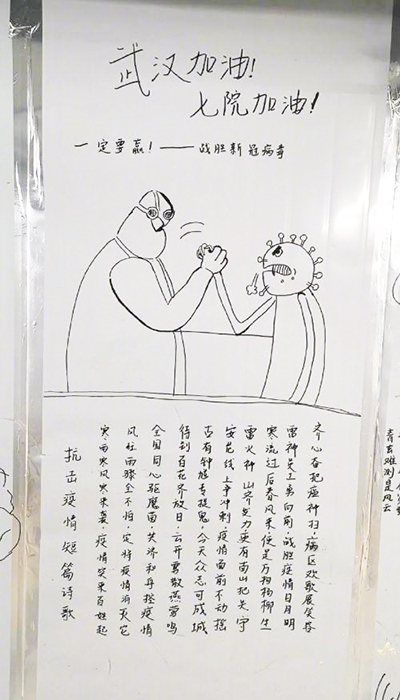 武汉加油!
七院加油!
一定要赢!——战胜新冠病毒
抗击疫情短篇诗歌
寒雨寒风寒来袭,疫情突来百姓起
风狂雨骤全不怕,定将疫情消灭它
全国同心驱魔菌,共济和舟控疫情
待到百花齐放日,云开雾散燕莺鸣
古有钟馗专捉鬼,今天众志可成城
安危线上争冲刺,疫情面前不动摇
雷火神山齐发力更有南山把关守
寒流过后春风来便是万物杨柳生
雷神员工勇向前战胜疫情日月明
齐心奋把瘟神扫,病区欢歌展笑容
难测是风云